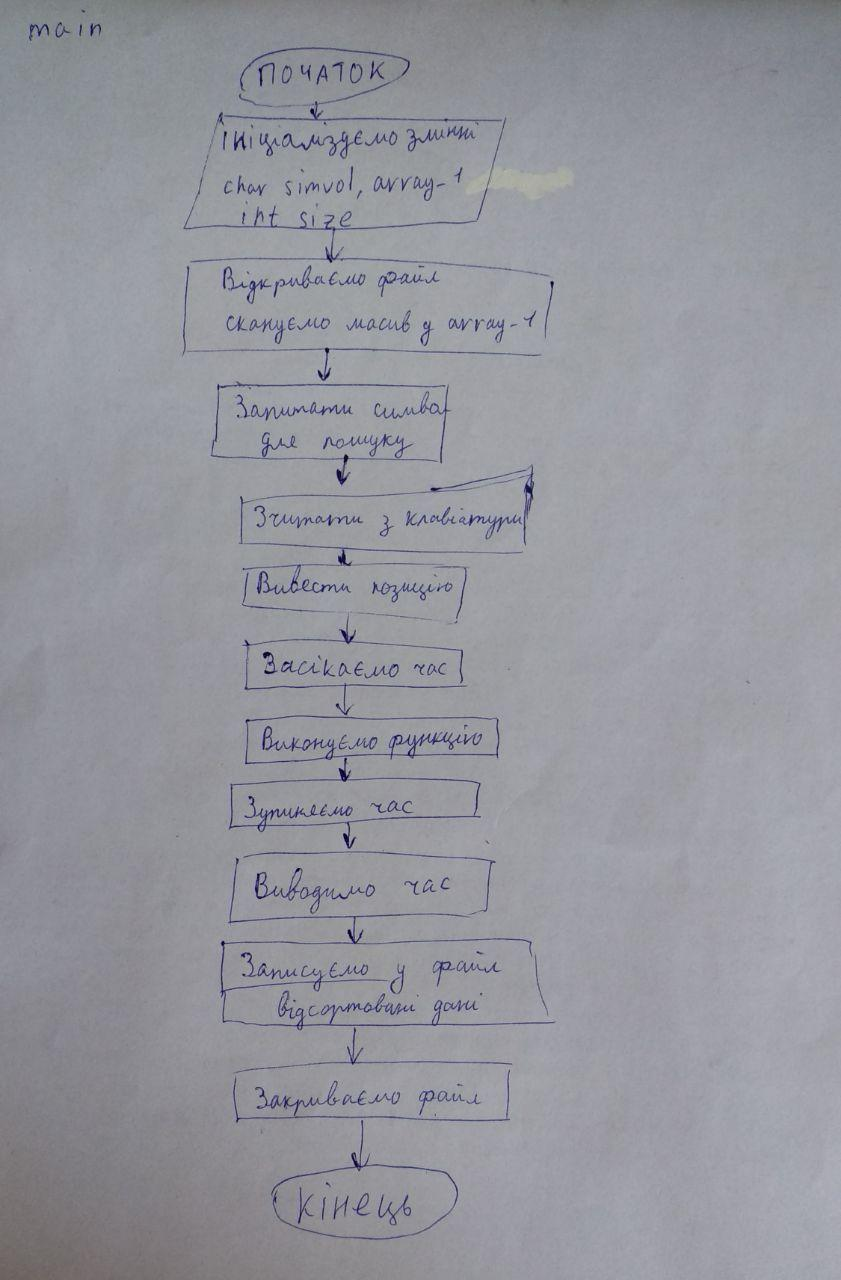 main
ПОЧАТОК
Ініціалізуємо змінні
char simvol, array-1
int size
Відкриваємо файл
скануємо масив у array-1
Запитати символ
для пошуку
Зчитати з клавіатури
Вивести позицію
Засікаємо час
Виконуємо функцію
Зупиняємо час
Виводимо час
Записуємо у файл
відсортовані дані
Закриваємо файл
Кінець